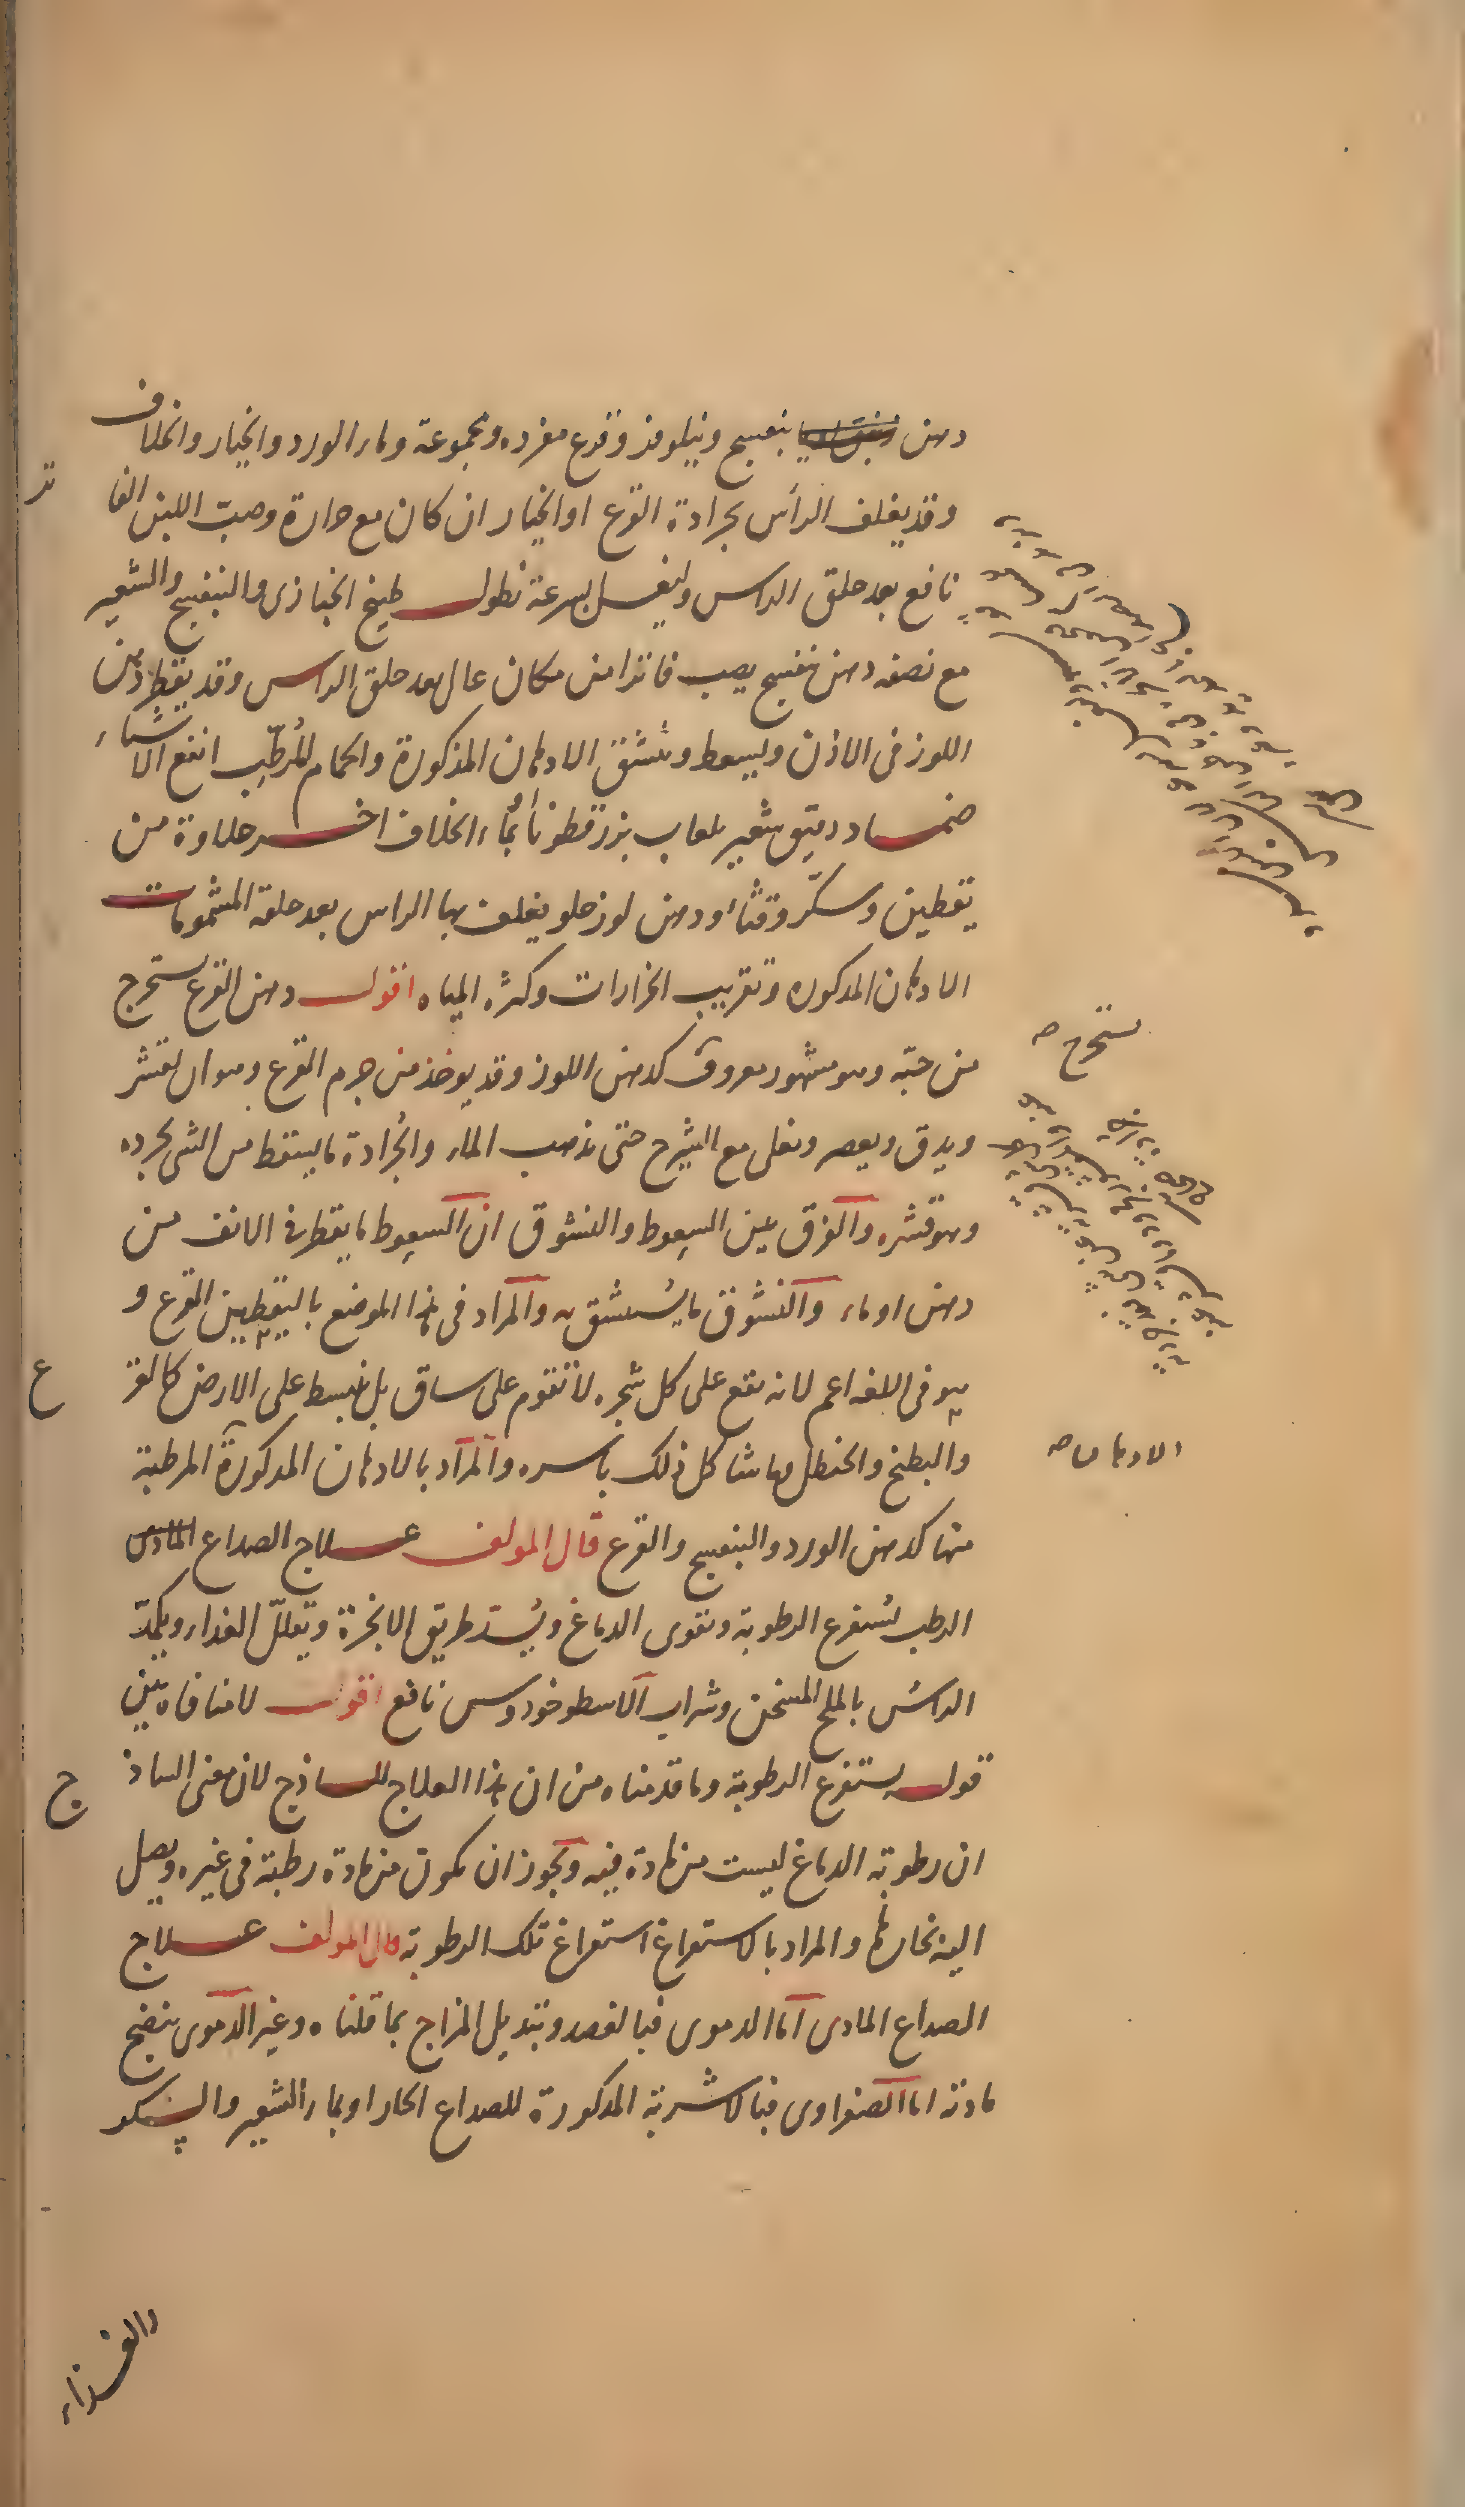 دهن بنفسج ونيلوفر وقرع مفرده ومجموعة وماء الورد والخيار والخلاف
وقد يغلف الرأس بجرادة القرع او الخيار ان كان مع حرارة وصبّ اللبن الفا
تر
نافع بعد حلق الراس وليغسل بسرعة نطول طبيخ الخبازى والبنفسج والشعير
مع نصفه دهن بنفسج يصب فاترا من مكان عال بعد حلق الراس وقد يقطر دهن
اللوز فى الاذن ويسعط ونشق الادهان المذكورة والحمام المُرطّب انفع الاشياء
ضماد دقيق شعير بلعاب بزرقطونا بماء الخلاف اخر حلاوة من
يقطين وسكّر وقثاء ودهن لوز حلو يغلف بها الراس بعد حلقه المشمومات
الادهان المذكوره وتقريب الخرارات وكثرة المياه اقول دهن القرع يستخرج
من حبّه وهو مشهور معروف كدهن اللوز وقد يوخذ من جرم القرع وهو ان يقشر
ويدق ويعصر ويغلى مع الشيرج حتى يذهب الماء والجُرادة ما يسقط من الشى بجرده
وهو قشره والفرق بين السعوط والنشوق ان السعوط ما يقطر فى الانف من
دهن او ماء والنشوق ما يُستنشق به والمراد فى هذا الموضع باليقطين القرع و
هو فى اللغه اعم لانه يقع على كل شجره لا تقوم على ساق بل ينبسط على الارض كالقر
ع
والبطيخ والحنظل وما شاكل ذلك باسره والمراد بالادهان المذكورة المرطبة
منها كدهن الورد والبنفسج والقرع قال المولف علاج الصداع المادى
الرطب يستفرغ الرطوبة ويقوى الدماغ ويُسدّ طريق الابخرة ويقلل الغذاء ويكمّد
الراس بالملح المسخن وشراب الاسطوخودوس نافع اقول لا منافاه بين
قوله يستفرغ الرطوبة وما قدمناه من ان هذا العلاج للساذج لان معنى الساذ
ج
ان رطوبة الدماغ ليست من مادة فيه ويجوز ان يكون من مادة رطبة فى غيره ويصل
اليه بخارها والمراد بالاستفراغ استفراغ تلك الرطوبة قال المولف علاج
الصداع المادى اما الدموى فبالفصد وتبديل المزاج بما قلناه وغير الدموى بنضج
مادته اما الصفراوى فبالاشربة المذكورة للصداع الحار او بماء الشعير والسكر
يستخرج صح
الادهان صح
والغذاء